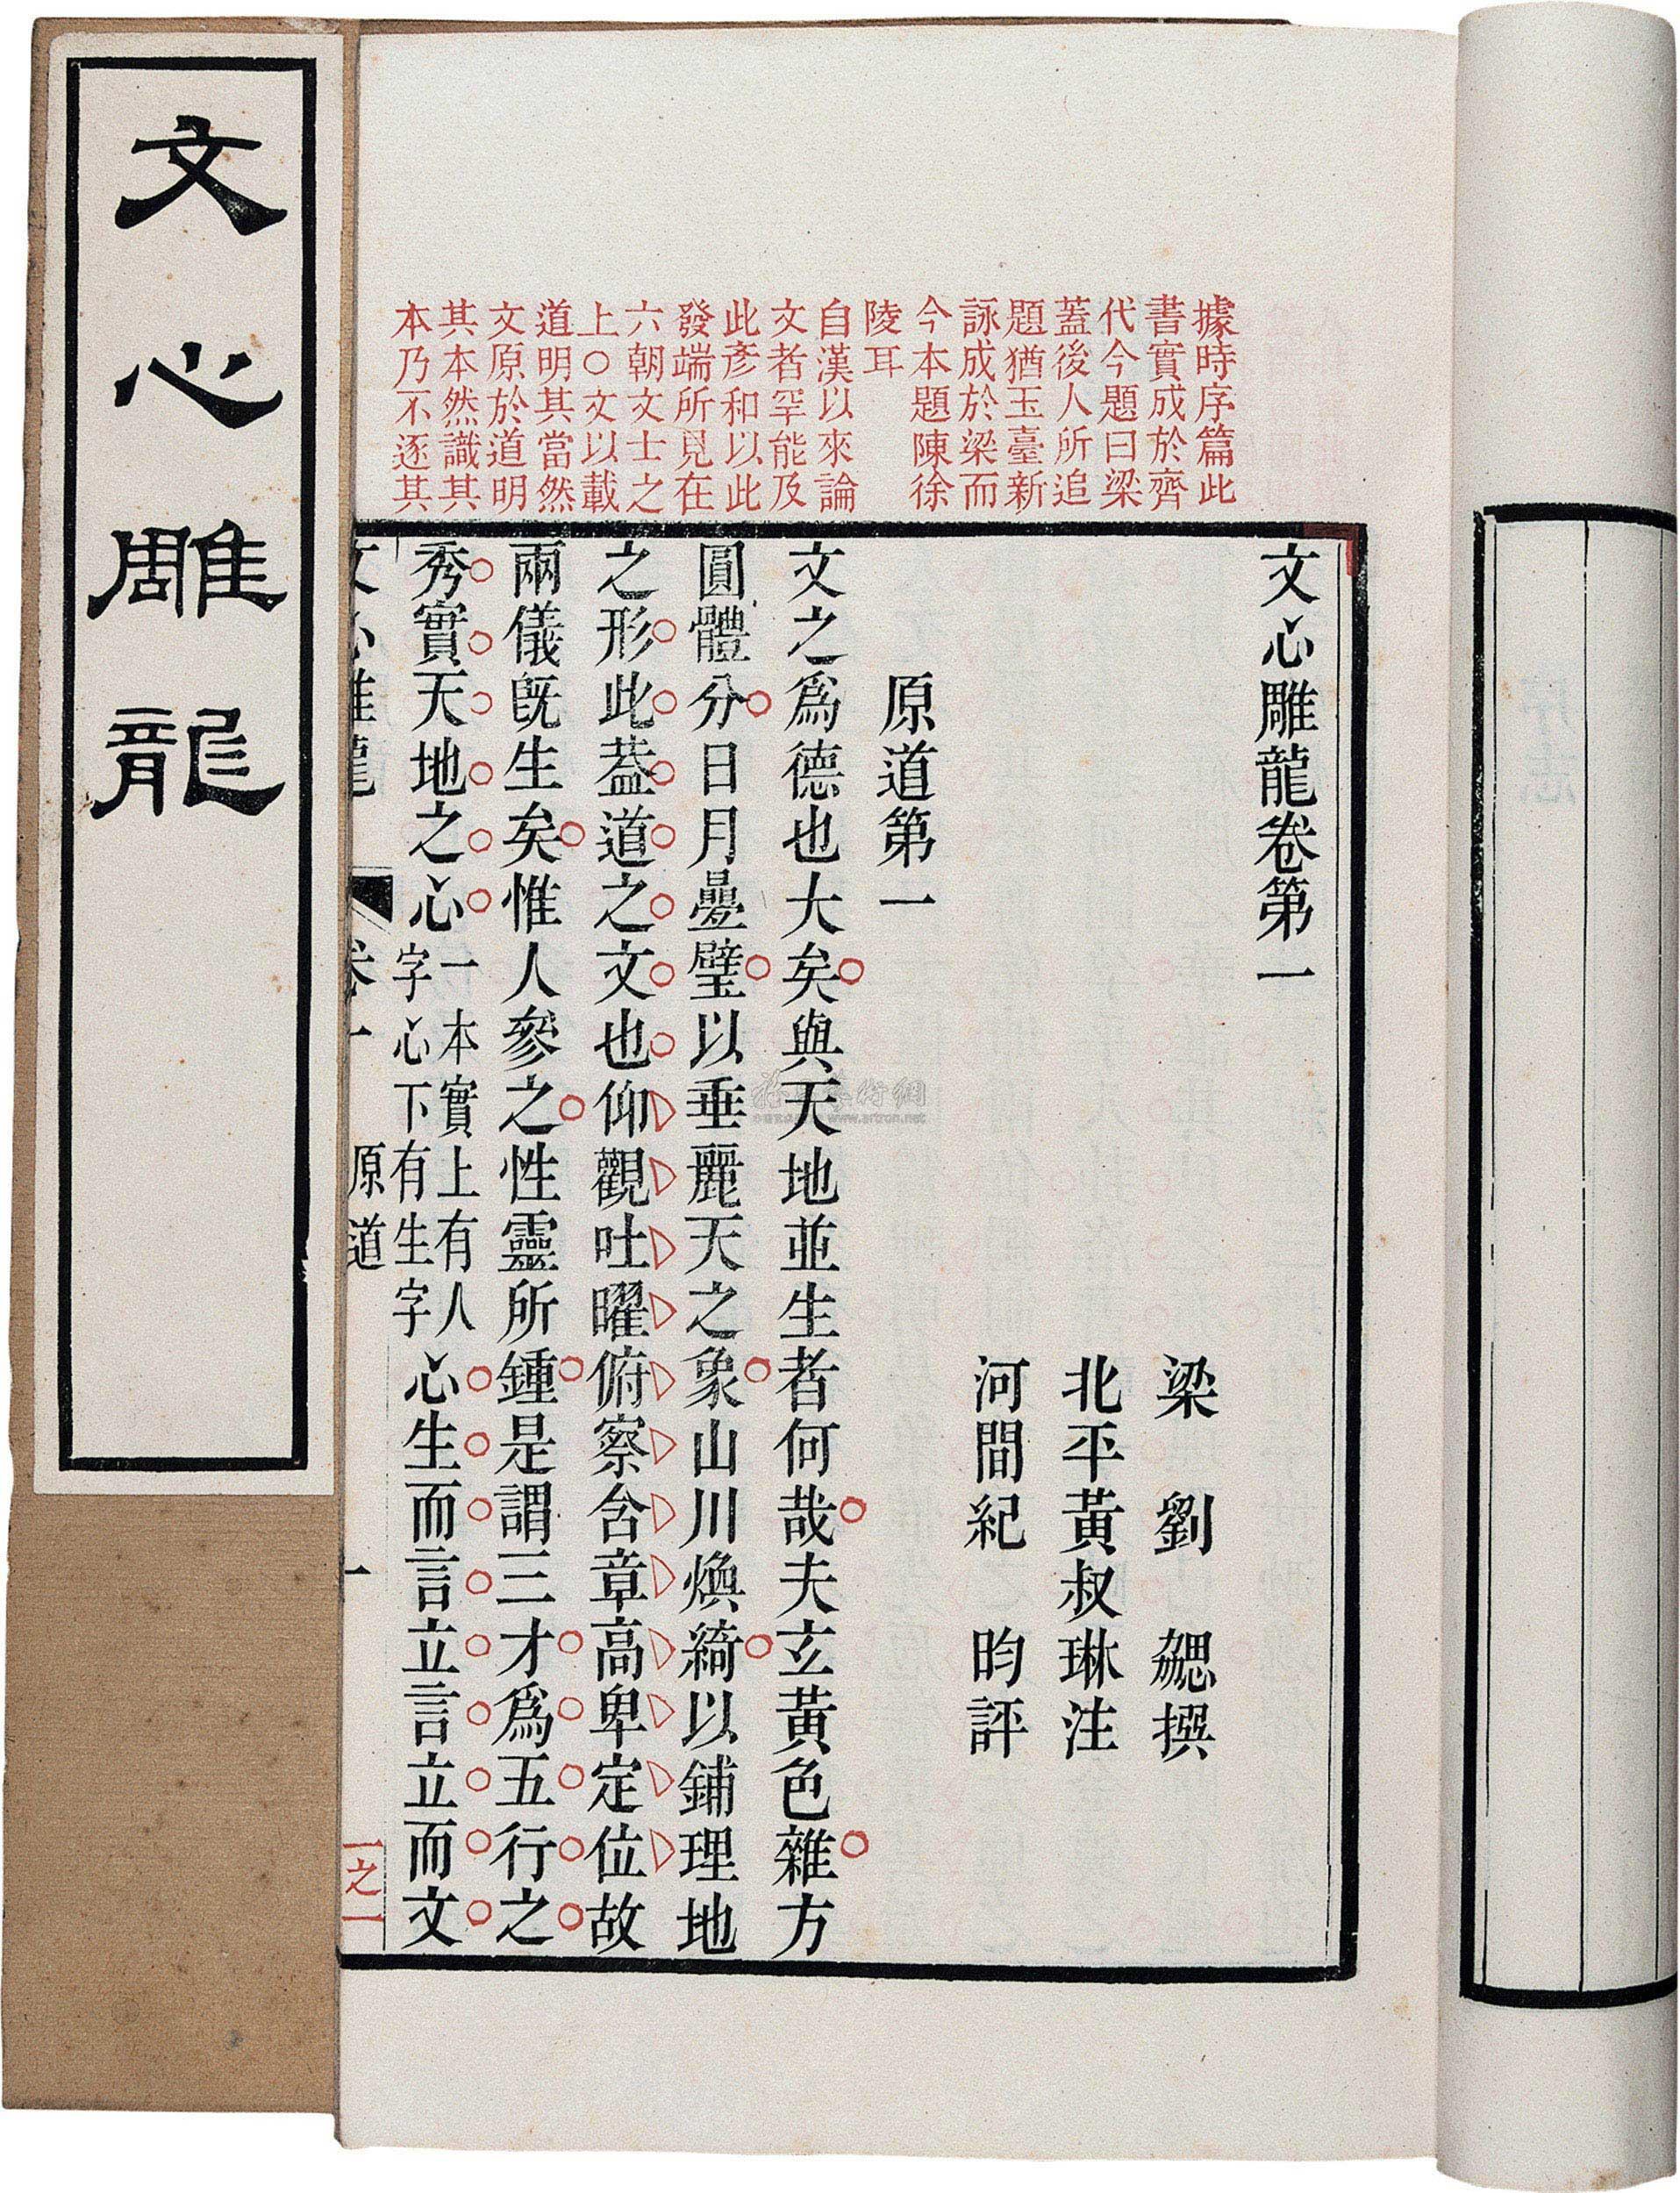 文心雕龍
據時序篇此
書實成於齊
代今題曰梁
蓋後人所追
題猶玉臺新
詠成於梁而
今本題陳徐
陵耳
自漢以來論
文者罕能及
此彥和以此
發端所見在
六朝文士之
上○文以載
道明其當然
文原於道明
其本然識其
本乃不逐其
文心雕龍卷第一
梁劉勰撰
北平黃叔琳注
河間紀昀評
原道第一
文之爲德也大矣與天地並生者何哉夫玄黃色雜方
圓體分日月曡璧以垂麗天之象山川煥綺以鋪理地
之形此葢道之文也仰觀吐曜俯察含章高卑定位故
兩儀旣生矣惟人參之性靈所鍾是謂三才爲五行之
秀實天地之心一本實上有人字心下有生字心生而言立言立而文
文心雕龍 卷一 原道 一
一之一
www.artron.net